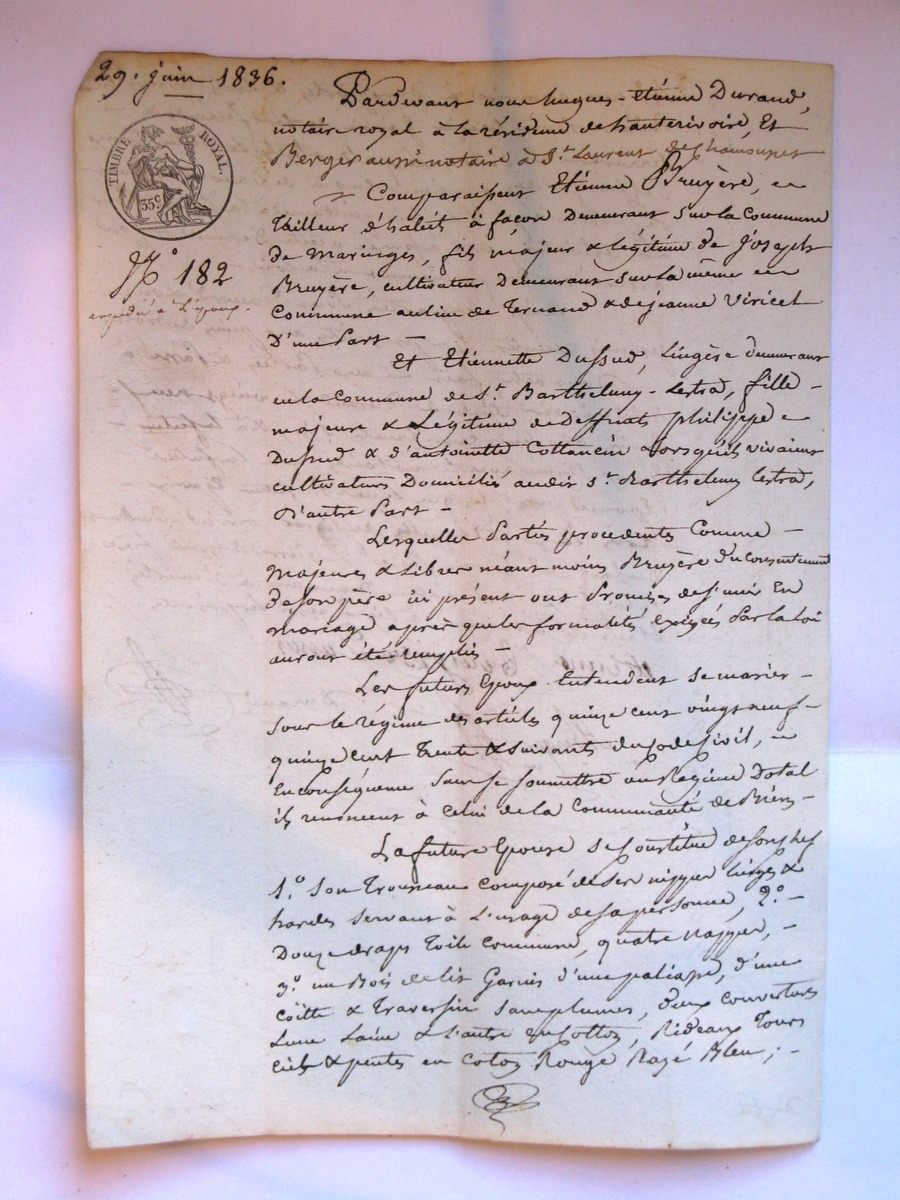 29. juin 1836.
TIMBRE ROYAL.
35c.
N° 182
expédié à l'époux.
Pardevant nous hugues-étienne Durand,
notaire royal à la résidence de hauterivoire, Et
Berger aussi notaire à St. Laurent de Chamousset
Comparaissent Etienne Bruyère,
tailleur d'habits à façon Demeurant sur la Commune
de Maringes, fils majeur & légitime de joseph
Bruyère, cultivateur Demeurant sur la même
Commune au lieu de Ternand & de jeanne Viricel
D'une Part —
Et Etiennette Dussud, Lingère demeurant
en la Commune de St. Barthelemy-Lestra, fille —
majeure & Légitime de deffunts philippe
Dussud & d'antoinette Cottancin Lorsqu'ils vivaient
cultivateurs Domiciliés audit St. Barthelemy Lestra,
D'autre Part —
Lesquelles Parties procedentes Comme —
Majeures & Libres néantmoins Bruyère du consentement
de son père ici présent ont Promises de s'unir En
mariage après que les formalités exigées Par la Loi
auront été remplies —
Les futurs Epoux Entendent se marier —
Sous le régime des articles quinze cent vingt neuf —
quinze cent Trente & suivants du code Civil,
En conséquence Sans se soumettre au Régime Dotal
ils renoncent à Celui de la Communauté de Biens —
La future Epouse se Constitue de son chef
1.° Son Trousseau composé de ses nippes linges &
hardes servant à L'usage de sa personne, 2.° —
Douze draps Toile Commune, quatre nappes, —
3.° un Bois de lit Garnis d'une paliasse, d'une
coitte & Traversin sans plumes, deux couvertures
L'une Laine & L'autre en Cotton, Rideaux Tours
ciels & pentes en coton Rouge Rayé Bleu ; —